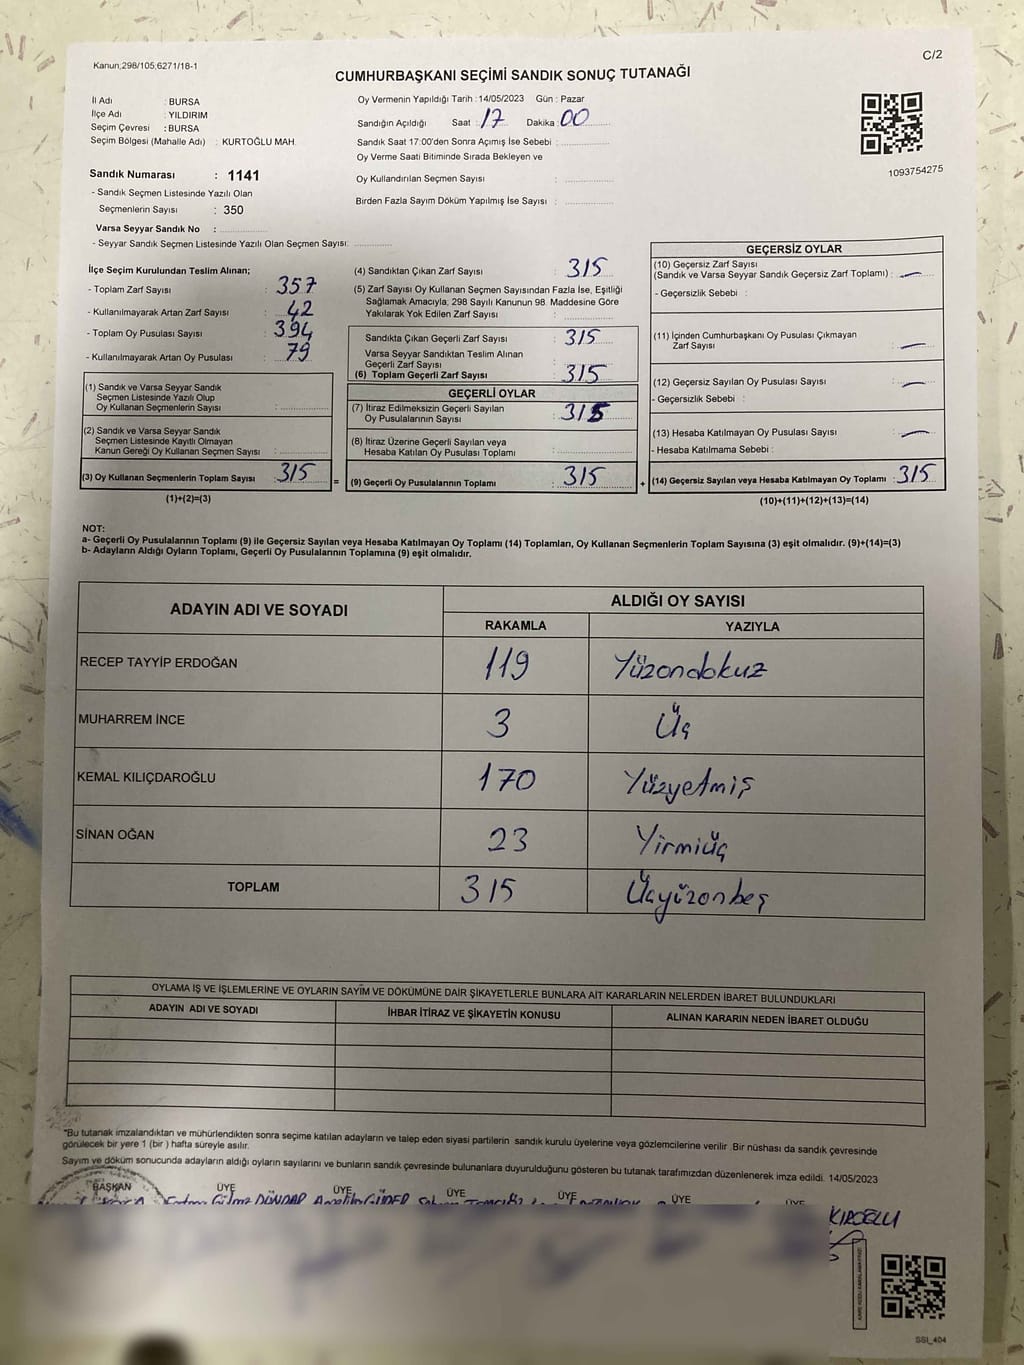 Kanun,298/105,6271/18-1
C/2
CUMHURBAŞKANI SEÇİMİ SANDIK SONUÇ TUTANAĞI
İl Adı : BURSA
İlçe Adı : YILDIRIM
Seçim Çevresi : BURSA
Seçim Bölgesi (Mahalle Adı) : KURTOĞLU MAH.
Oy Vermenin Yapıldığı Tarih : 14/05/2023 Gün : Pazar
Sandığın Açıldığı Saat : 17 Dakika : 00
Sandık Saat 17:00'den Sonra Açımış İse Sebebi :
Oy Verme Saati Bitiminde Sırada Bekleyen ve
Oy Kullandırılan Seçmen Sayısı :
Birden Fazla Sayım Döküm Yapılmış İse Sayısı :
1093754275
Sandık Numarası : 1141
- Sandık Seçmen Listesinde Yazılı Olan
Seçmenlerin Sayısı : 350
Varsa Seyyar Sandık No :
- Seyyar Sandık Seçmen Listesinde Yazılı Olan Seçmen Sayısı:
İlçe Seçim Kurulundan Teslim Alınan;
- Toplam Zarf Sayısı : 357
- Kullanılmayarak Artan Zarf Sayısı : 42
- Toplam Oy Pusulası Sayısı : 394
- Kullanılmayarak Artan Oy Pusulası : 79
(1) Sandık ve Varsa Seyyar Sandık
Seçmen Listesinde Yazılı Olup
Oy Kullanan Seçmenlerin Sayısı :
(2) Sandık ve Varsa Seyyar Sandık
Seçmen Listesinde Kayıtlı Olmayan
Kanun Gereği Oy Kullanan Seçmen Sayısı :
(3) Oy Kullanan Seçmenlerin Toplam Sayısı : 315
(1)+(2)=(3)
=
(4) Sandıktan Çıkan Zarf Sayısı : 315
(5) Zarf Sayısı Oy Kullanan Seçmen Sayısından Fazla İse, Eşitliği
Sağlamak Amacıyla, 298 Sayılı Kanunun 98. Maddesine Göre
Yakılarak Yok Edilen Zarf Sayısı :
Sandıkta Çıkan Geçerli Zarf Sayısı : 315
Varsa Seyyar Sandıktan Teslim Alınan
Geçerli Zarf Sayısı :
(6) Toplam Geçerli Zarf Sayısı : 315
GEÇERLİ OYLAR
(7) İtiraz Edilmeksizin Geçerli Sayılan
Oy Pusulalarının Sayısı : 315
(8) İtiraz Üzerine Geçerli Sayılan veya
Hesaba Katılan Oy Pusulası Toplamı :
(9) Geçerli Oy Pusulalarının Toplamı : 315
+
GEÇERSİZ OYLAR
(10) Geçersiz Zarf Sayısı
(Sandık ve Varsa Seyyar Sandık Geçersiz Zarf Toplamı) : —
- Geçersizlik Sebebi :
(11) İçinden Cumhurbaşkanı Oy Pusulası Çıkmayan
Zarf Sayısı : —
(12) Geçersiz Sayılan Oy Pusulası Sayısı : —
- Geçersizlik Sebebi :
(13) Hesaba Katılmayan Oy Pusulası Sayısı : —
- Hesaba Katılmama Sebebi :
(14) Geçersiz Sayılan veya Hesaba Katılmayan Oy Toplamı : 315
(10)+(11)+(12)+(13)=(14)
NOT:
a- Geçerli Oy Pusulalarının Toplamı (9) ile Geçersiz Sayılan veya Hesaba Katılmayan Oy Toplamı (14) Toplamları, Oy Kullanan Seçmenlerin Toplam Sayısına (3) eşit olmalıdır. (9)+(14)=(3)
b- Adayların Aldığı Oyların Toplamı, Geçerli Oy Pusulalarının Toplamına (9) eşit olmalıdır.
ADAYIN ADI VE SOYADI
ALDIĞI OY SAYISI
RAKAMLA YAZIYLA
RECEP TAYYİP ERDOĞAN 119 Yüzondokuz
MUHARREM İNCE 3 Üç
KEMAL KILIÇDAROĞLU 170 Yüzyetmiş
SİNAN OĞAN 23 Yirmiüç
TOPLAM 315 Üçyüzonbeş
OYLAMA İŞ VE İŞLEMLERİNE VE OYLARIN SAYIM VE DÖKÜMÜNE DAİR ŞİKAYETLERLE BUNLARA AİT KARARLARIN NELERDEN İBARET BULUNDUKLARI
ADAYIN ADI VE SOYADI İHBAR İTİRAZ VE ŞİKAYETİN KONUSU ALINAN KARARIN NEDEN İBARET OLDUĞU
"Bu tutanak imzalandıktan ve mühürlendikten sonra seçime katılan adayların ve talep eden siyasi partilerin sandık kurulu üyelerine veya gözlemcilerine verilir. Bir nüshası da sandık çevresinde
görülecek bir yere 1 (bir ) hafta süreyle asılır.
Sayım ve döküm sonucunda adayların aldığı oyların sayılarını ve bunların sandık çevresinde bulunanlara duyurulduğunu gösteren bu tutanak tarafımızdan düzenlenerek imza edildi. 14/05/2023
BAŞKAN ÜYE ÜYE ÜYE ÜYE ÜYE ÜYE
DÜNDAR
SSI_404